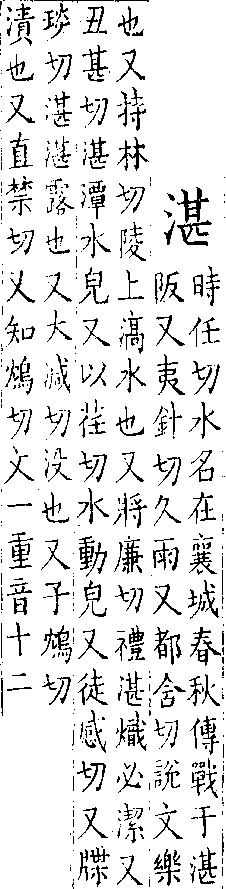 湛
時任切水名在襄城春秋傳戰于湛
阪又夷針切久雨又都含切說文樂
也又持林切陵上滈水也又將廉切禮湛熾必潔又
丑甚切湛潭水皃又以荏切水動皃又徒感切又牒
琰切湛湛露也又大減切没也又子鴆切
漬也又直禁切又知鴆切文一重音十二